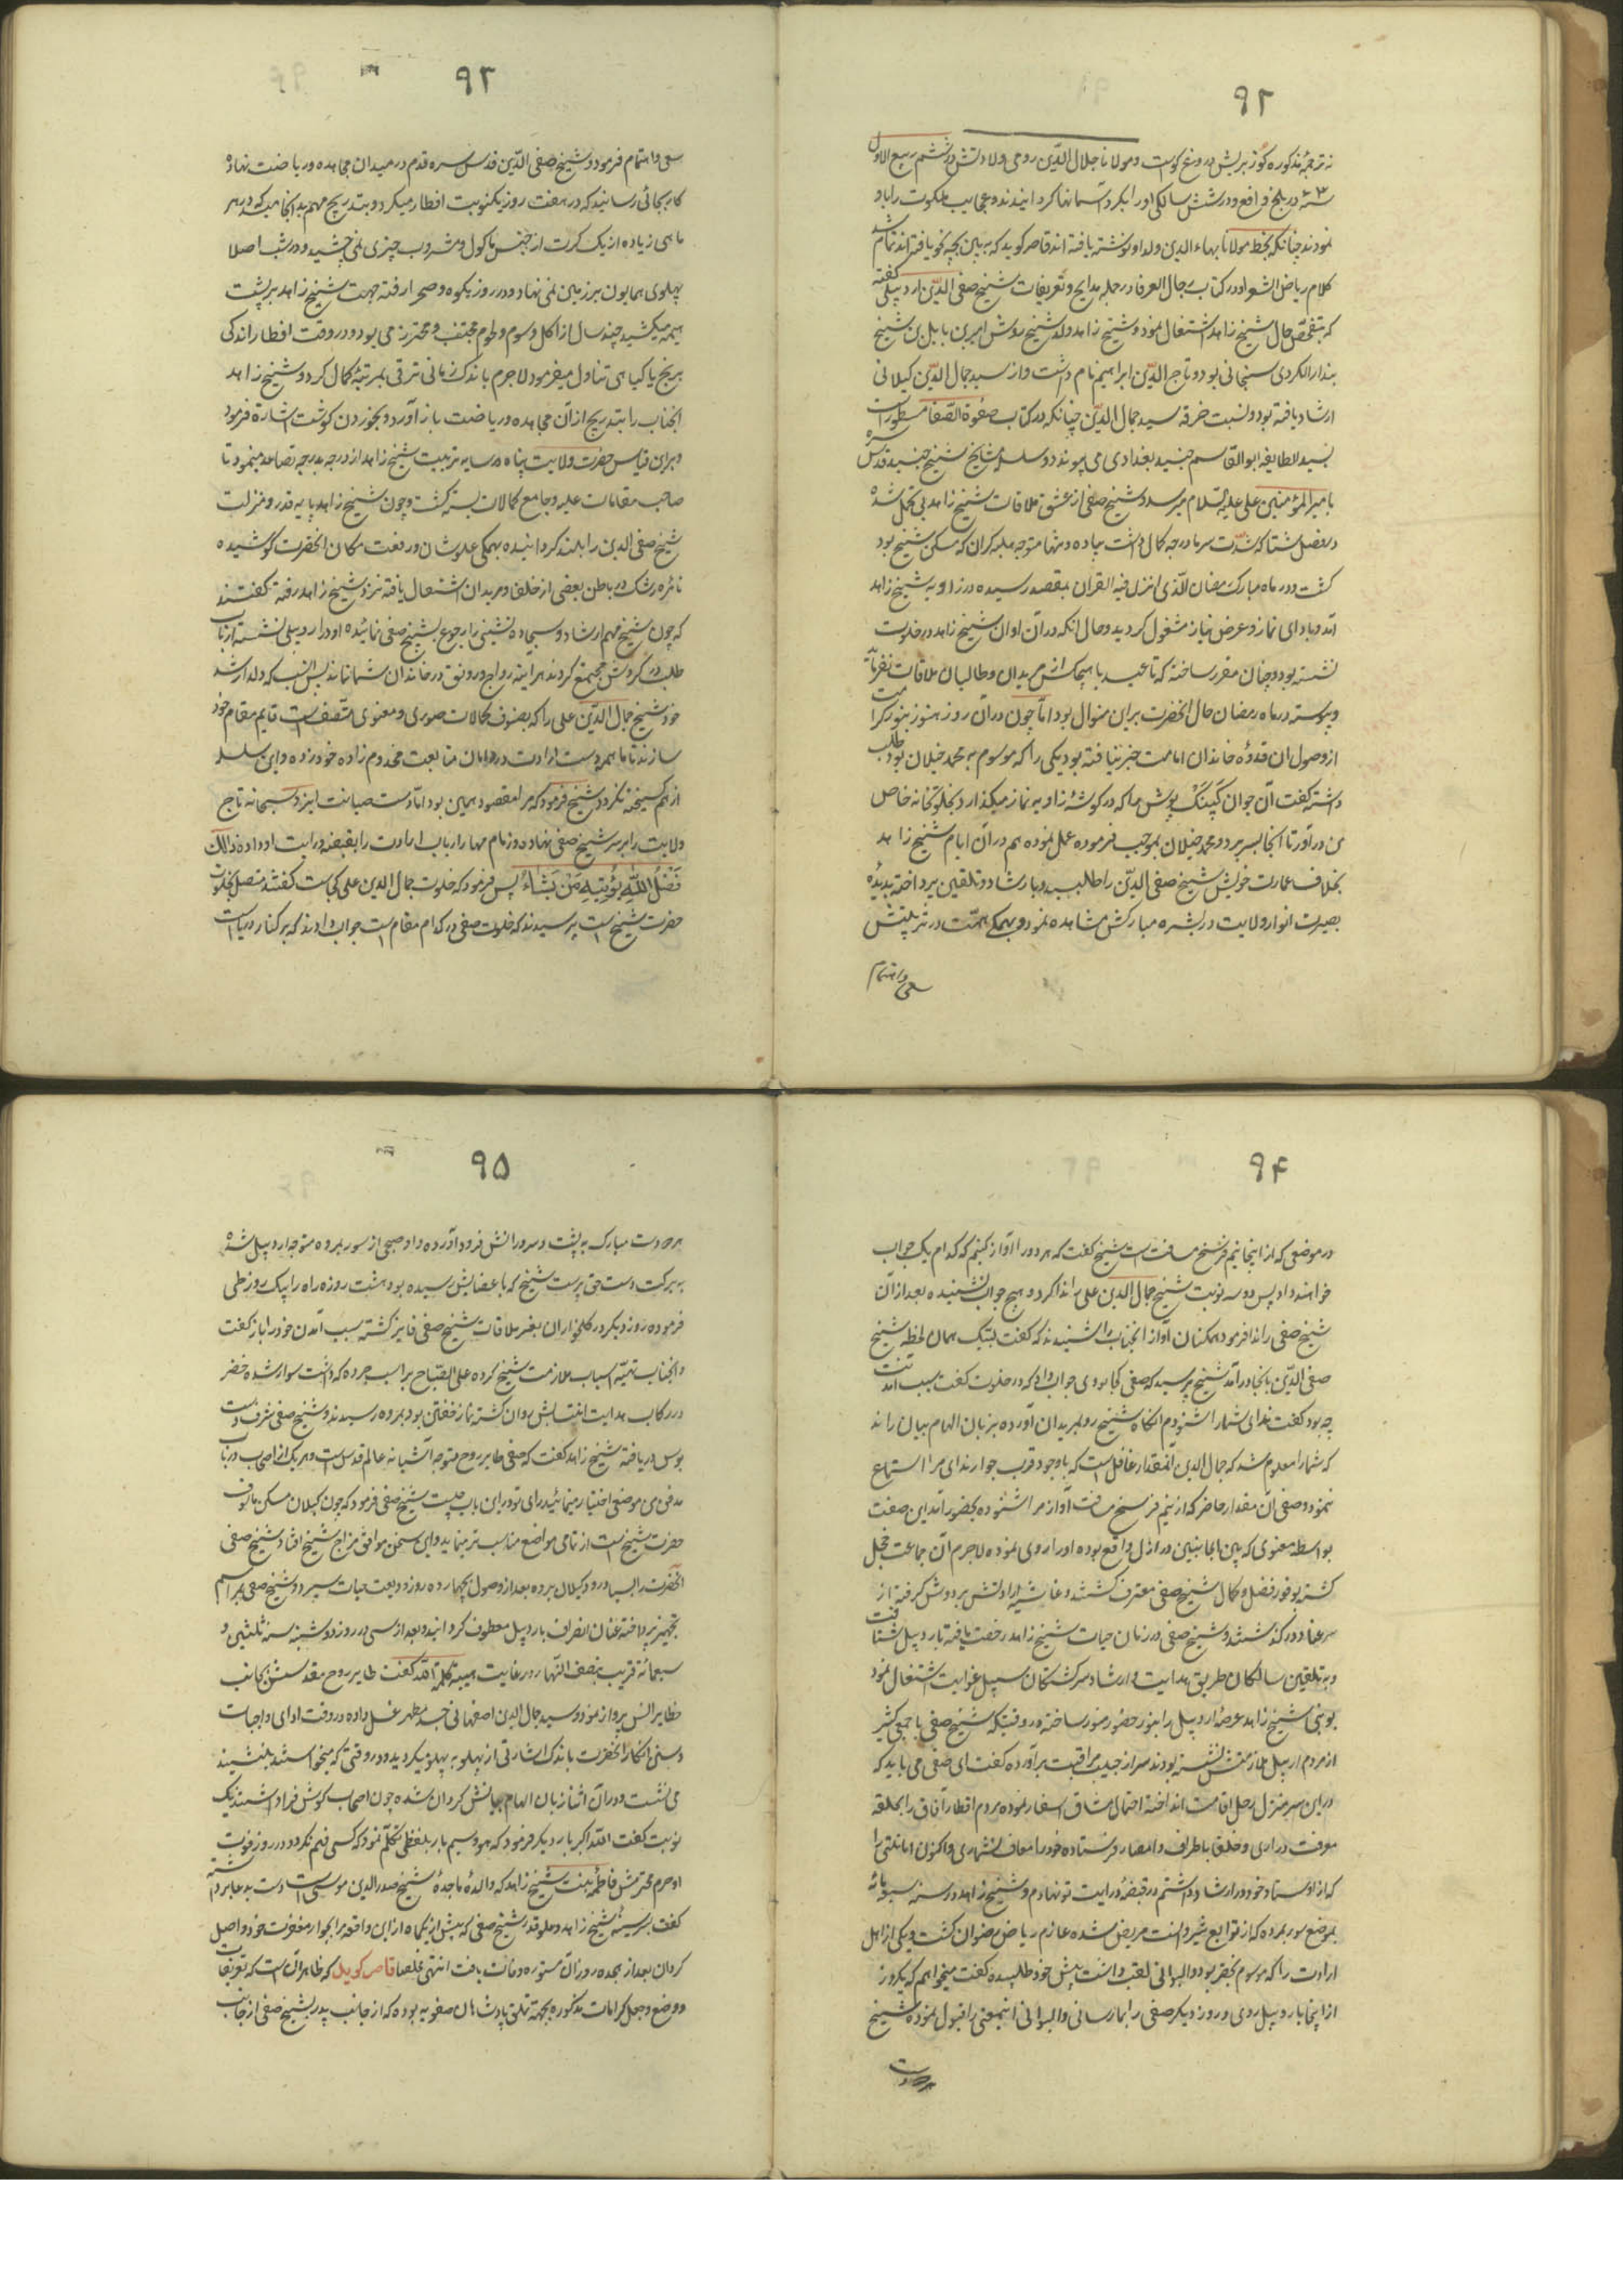 ۹۲
نه ترجمهٔ مذکوره کوز بریش دروغ کوست و مولانا جلال الدین رومی ولادتش در ششم ربیع الاول
در بلخ واقع و در شش سالکی او را بکرد آسمانها کردانیدند و عجایب ملکوت را باو
نمودند چنانکه بخط مولانا بهاء الدین ولد او نوشته یافته اند قاصر کوید که به بین بچه کو یافته اند تمام شد
کلام ریاض الشعرا و در کتاب رجال العرفا در جمله مدایح و تعریفات شیخ صفی الدین اردبیلی کفته
که بتفحص حال شیخ زاهد اشتغال نمود و شیخ زاهد ولد شیخ روشن امیر بن بابل بن شیخ
بندار الکردی سنجانی بود و تاج الدین ابراهیم نام داشت و از سید جمال الدین کیلانی
ارشاد یافته بود و نسبت خرقه سید جمال الدین چنانکه در کتاب صفوة الصفا مسطور است
بسید الطایفه ابو القاسم جنید بغدادی می پیوندد و سلسلهٔ مشایخ شیخ جنید قدس سره
بامیر المؤمنین علی علیه السلام میرسد و شیخ صفی از عشق ملاقات شیخ زاهد بی تحمل شده
در فصل شتا که شدت سرما درجه کمال داشت پیاده و تنها متوجه حلیه کران که مسکن شیخ بود
کشت و در ماه مبارک رمضان الذی انزل فیه القران بمقصد رسیده در زاویه شیخ زاهد
آمد و بادای نماز و عرض نیاز مشغول کردید و حال آنکه در آن اوان شیخ زاهد در خلوت
نشسته بود و چنان مقرر ساخته که تا عید با هیچکس از مریدان و طالبان ملاقات نفرماید
و پیوسته در ماه رمضان حال آنحضرت بر این منوال بود اما چون در آن روز هنوز بنور کرامت
از وصول آن قدوهٔ خاندان امامت خبر نیافته بود یکی را که موسوم به محمد خلیلان بود طلب
داشته کفت آن جوان کپنک پوش را که در کوشهٔ زاویه نماز میکذارد بخلوتخانه خاص
من در آور تا آنجا بسر برد و محمد خلیلان بموجب فرموده عمل نموده هم در آن ایام شیخ زاهد
بخلاف عادت خویش شیخ صفی الدین را طلبید و بارشاد و تلقین پرداخته بدیدهٔ
بصیرت انوار ولایت در بشره مبارکش مشاهده نمود و بهمکی همت در تربیتش
سعی و اهتمام
۹۳
سعی و اهتمام فرمود و شیخ صفی الدین قدس سره قدم در میدان مجاهده و ریاضت نهاده
کار بجائی رسانید که در هفت روز یکنوبت افطار میکرد و بتدریج مهم بدانجا میرسید که در هر
ماهی زیاده از یک کرت از جنس ماکول و مشروب چیزی نمی چشید و در شب اصلا
پهلوی همایون بر زمین نمی نهاد و در روز بکوه و صحرا رفته جهت شیخ زاهد بر پشت
هیمه میکشید چند سال از اکل دسوم و لحوم مجتنب و محترز می بود و در وقت افطار اندکی
برنج یا کیاهی تناول میفرمود لاجرم باندک زمانی ترقی بمرتبهٔ کمال کرد و شیخ زاهد
انجناب را بتدریج از آن مجاهده و ریاضت باز آورد و بخوردن کوشت اشاره فرمود
و بر این قیاس حضرت ولایت پناه در سایه تربیت شیخ زاهد از درجه بدرجه تصاعد مینمود تا
صاحب مقامات علیه و جامع کمالات سنیه کشت و چون شیخ زاهد پایه قدر و منزلت
شیخ صفی الدین را بلند کردانیده بهمکی علو شان و رفعت مکان آنحضرت کوشیده
نائره رشک در باطن بعضی از خلفا و مریدان اشتعال یافته نزد شیخ زاهد رفته کفتند
که چون شیخ مهم ارشاد و سجاده نشینی را رجوع بشیخ صفی نمائید و او در اردبیلی نشسته ارباب
طلب در کردش مجتمع کردند هر آینه رواج و رونق در خاندان شما نماند پس انسب که ولد ارشد
خود شیخ جمال الدین علی را که بصنوف کمالات صوری و معنوی متصف است قایم مقام خود
سازند تا ما همه دست ارادت در دامان متابعت مخدوم زاده خود زده و این سلسله
از هم کسیخته نکردد شیخ فرمود که مرا مقصود همین بود اما دست صیانت ایزد سبحانه تاج
ولایت را بر سر شیخ صفی نهاد و زمام مهام ارباب ارادت را بقبضه درایت او داده ذالک
فَضْلُ اللّهِ یُؤتِیهِ مَنْ یَشَاءُ پس فرمود که خلوت جمال الدین علی کجاست کفتند متصل بخلوت
حضرت شیخ است پرسیدند که خلوت صفی در کدام مقام است جواب دادند که بر کنار دریاست
۹۴
در موضعی که از اینجا نیم فرسخ مسافت است شیخ کفت که هر دو را آواز کنیم که کدام یک جواب
خواهند داد پس دو سه نوبت شیخ جمال الدین علی را ندا کرد و هیچ جواب نشنیده بعد از آن
شیخ صفی را ندا فرمود همکنان آواز انجناب را شنیدند که کفت لبیک همان لحظه شیخ
صفی الدین بانجا در آمد شیخ پرسید که صفی کجا بودی جواب داد که در خلوت کفت سبب آمدنت
چه بود کفت ندای شما را شنودم آنکاه شیخ رو بمریدان آورده بزبان الهام بیان راند
که شما را معلوم شد که جمال الدین آنمقدار غافل است که باوجود قرب جوار ندای مرا استماع
ننمود و صفی آن مقدار حاضر که از نیم فرسخ مسافت آواز مرا شنوده بحضور آمد این صفت
بواسطه معنوی که بین الجانبین در ازل واقع بوده او را روی نموده لاجرم آن جماعت خجل
کشته بوفور فضل و کمال شیخ صفی معترف کشتند و غاشیه ارادتش بر دوش کرفته از
سر عناد در کذشتند و شیخ صفی در زمان حیات شیخ زاهد رخصت یافته باردبیل شتافت
و بتلقین سالکان طریق هدایت و ارشاد سرکشتکان سبیل غوایت اشتغال نمود
نوبتی شیخ زاهد عرصهٔ اردبیل را بنور حضور منور ساخته در وقتیکه شیخ صفی با جمعی کثیر
از مردم اردبیل ملازمتش نشسته بودند سر از جیب مراقبت بر آورده کفت ای صفی می باید که
در این سر منزل رحل اقامت انداخته احتمال مشاق اسفار نموده مردم اقطار آفاق را بحلقه
معرفت در اری و خلفا باطراف و امصار فرستاده خود را معاف نشماری و اکنون امانتی را
که از استاد خود در ارشاد داشتم در قبضهٔ درایت تو نهادم و شیخ زاهد در سنه سبعمائه
بموضع سور مرده که از توابع شیروانست مریض شده عازم ریاض رضوان کشت و یکی از اهل
ارادت را که موسوم بخضر بود و الیوانی لقب داشت پیش خود طلبیده کفت میخواهم که یکروز
از اینجا باردبیل روی و روز دیکر صفی را بما رسانی و الیوانی اینمعنی را قبول نموده شیخ
هر دو دست
۹۵
هر دو دست مبارک به پشت و سر و رانش فرود آورده و او صبحی از سور مرده متوجه اردبیل شده
به برکت دست حق پرست شیخ که باعضایش رسیده بود هشت روزه راه را بیک روز طی
فرموده روز دیکر در کلخواران بفیض ملاقات شیخ صفی فایز کشته سبب آمدن خود را باز کفت
و انجناب تهیّه اسباب ملازمت شیخ کرده علی الصباح بر اسب جرده که داشت سوار شده خضر
در رکاب هدایت انتسابش روان کشته نماز خفتن بود بمرده رسیدند و شیخ صفی شرف دست
بوس دریافته شیخ زاهد کفت که صفی طایر روح متوجه آشیانه عالم قدس است و هر یک از اصحاب در باب
مدفن من موضعی اختیار مینمایند رای تو در این باب چیست شیخ صفی فرمود که چون کیلان مسکن مالوف
حضرت شیخ است از تمامی مواضع مناسب تر مینماید و این سخن موافق مزاج شیخ افتاد و شیخ صفی
آنحضرت را بسیاورود کیلان برده بعد از وصول بچهارده روز ودیعت حیات سپرد و شیخ صفی بمراسم
تجهیز پرداخته عنان انصراف باردبیل معطوف کردانید و بعد از سی در روز دوشنبه سنه ثلثین و
سبعمائه قریب بنصف النهار در غایت هیبه کلمة الله کفت طایر روح مقدسش بجانب
حظایر انس پرواز نمود و سید جمال الدین اصفهانی جسد مطهر غسل داده در وقت ادای واجبات
و سنن انکار آنحضرت باندک اشارتی از پهلو به پهلو میکردید و در وقتی که میخواستند بنشیند
می نشست و در آن اثنا زبان الهام بیانش کردان شده چون اصحاب کوش فرا داشتند یک
نوبت کفت الله اکبر بار دیکر فرمود که هو و سیم بار بلفظی تکلم نمود که کسی فهم نکرد و در روز فوت
او حرم محترمش فاطمه بنت شیخ زاهد که والدهٔ ماجدهٔ شیخ صدر الدین موسی است دست بدعا برداشته
کفت بسینهٔ شیخ زاهد و علو قدر شیخ صفی که پیش از یکماه از این واقعه مرا بجوار مغفرت خود واصل
کردان بعد از هجده روز آن مستوره وفات یافت انتهی ملخصا قاصر کوید که ظاهر آن است که تعریفات
و وضع و جعل کرامات مذکوره بجهة تملق پادشاهان صفویه بوده که از جانب پدر بشیخ صفی از جانب